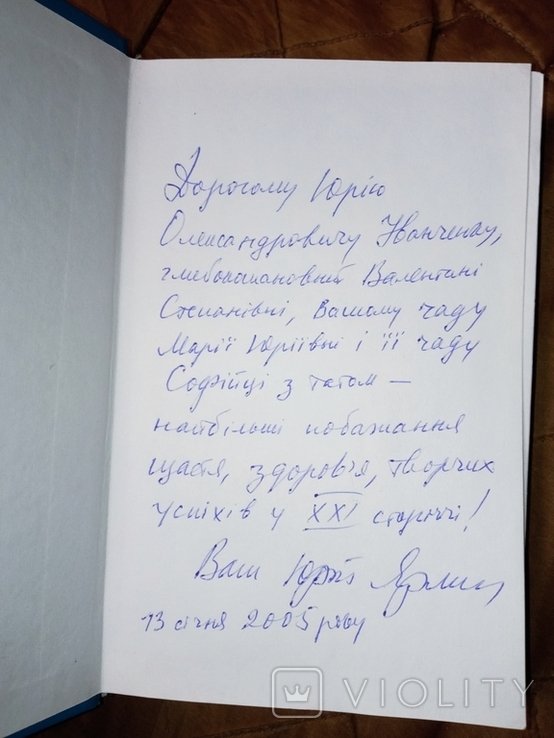 Дорогому Юрію
Олександровичу Іванченку,
глибокошановній Валентині
Степанівні, Вашому чаду
Марії Юріївні і її чаду
Софійці з татом —
найбільші побажання
щастя, здоров'я, творчих
успіхів у XXI сторіччі!
Ваш Юрій
13 січня 2005 року
VIOLITY